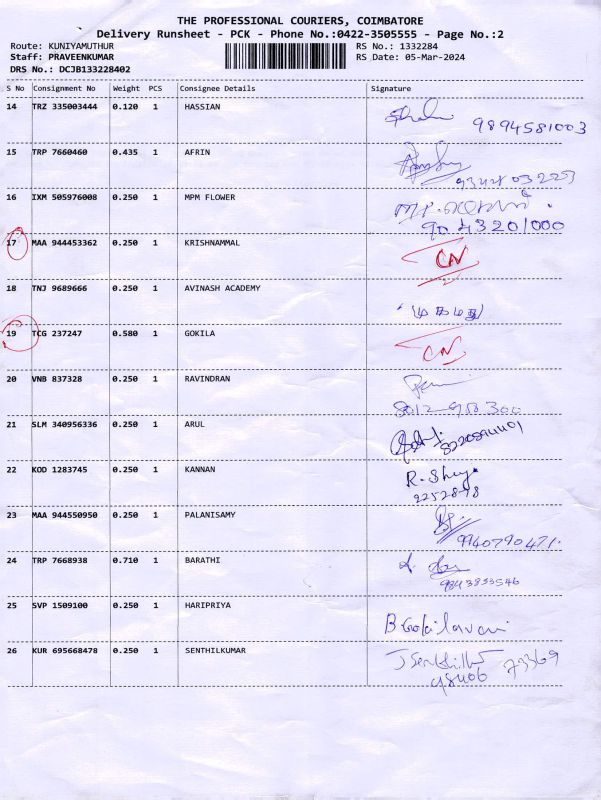 THE PROFESSIONAL COURIERS, COIMBATORE
Delivery Runsheet - PCK - Phone No.:0422-3505555 - Page No.:2
Route: KUNIYAMUTHUR RS No.: 1332284
Staff: PRAVEENKUMAR RS Date: 05-Mar-2024
DRS No.: DCJB133228402
S No Consignment No Weight PCS Consignee Details Signature
14 TRZ 335003444 0.120 1 HASSIAN
9894581003
15 TRP 7660460 0.435 1 AFRIN
16 IXM 505976008 0.250 1 MPM FLOWER
17 MAA 944453362 0.250 1 KRISHNAMMAL CN
18 TNJ 9689666 0.250 1 AVINASH ACADEMY
19 TCG 237247 0.580 1 GOKILA CN
20 VNB 837328 0.250 1 RAVINDRAN
21 SLM 340956336 0.250 1 ARUL
22 KOD 1283745 0.250 1 KANNAN
23 MAA 944550950 0.250 1 PALANISAMY
9940790471.
24 TRP 7668938 0.710 1 BARATHI
25 SVP 1509100 0.250 1 HARIPRIYA
26 KUR 695668478 0.250 1 SENTHILKUMAR
98406 73369